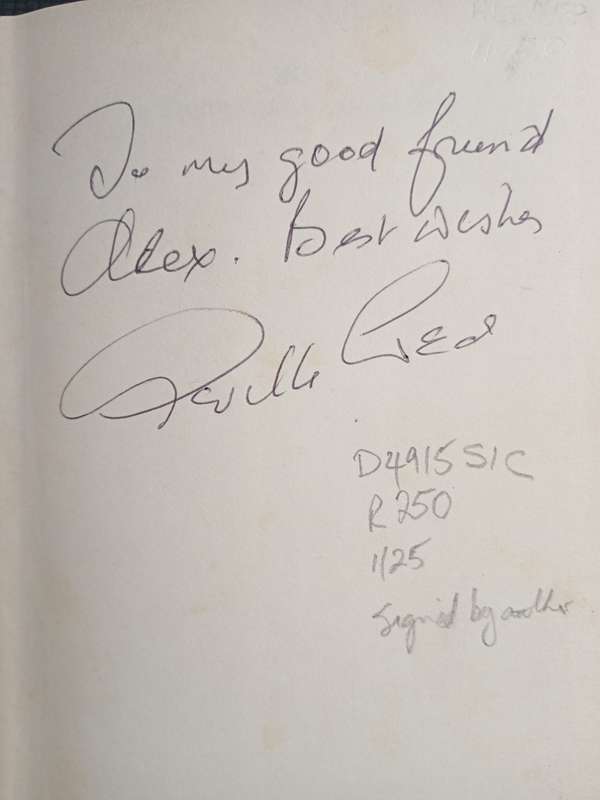 To my good friend
Alex. Best wishes
D4915 S/C
R 250
1/25
Signed by author